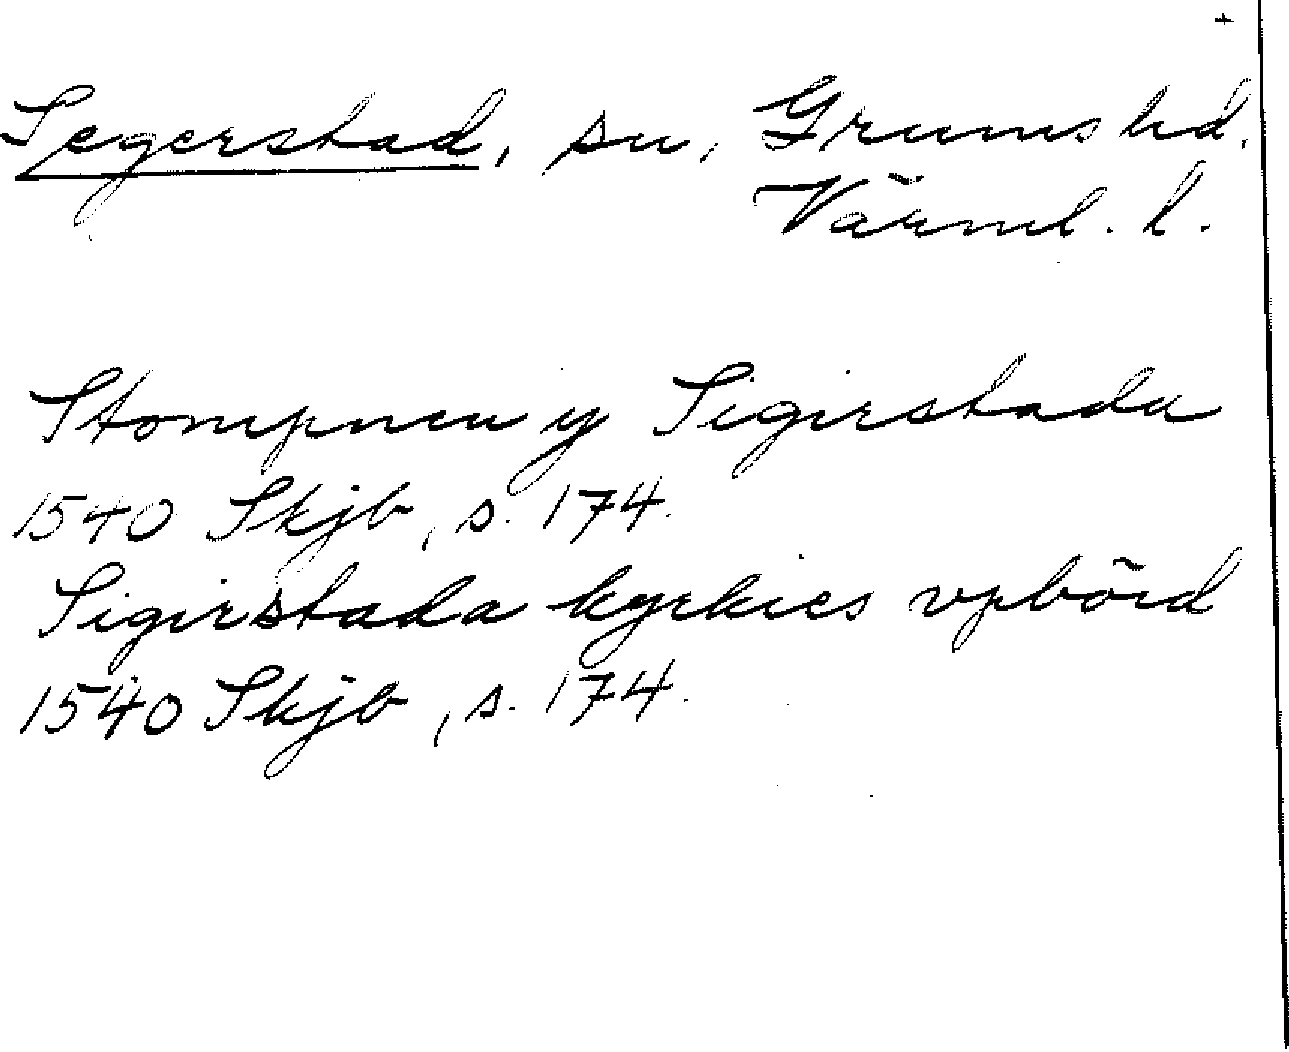 +
Segerstad, sn, Grums hd,
Värml. l.
Stompnen y Sigirstada
1540 Skjb, s. 174.
Sigirstada kyrkies vpbörd
1540 Skjb, s. 174.